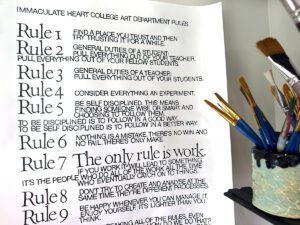 IMMACULATE HEART COLLEGE ART DEPARTMENT RULES
Rule 1 FIND A PLACE YOU TRUST AND THEN
TRY TRUSTING IT FOR A WHILE.
Rule 2 GENERAL DUTIES OF A STUDENT:
PULL EVERYTHING OUT OF YOUR TEACHER.
PULL EVERYTHING OUT OF YOUR FELLOW STUDENTS.
Rule 3 GENERAL DUTIES OF A TEACHER:
PULL EVERYTHING OUT OF YOUR STUDENTS.
Rule 4 CONSIDER EVERYTHING AN EXPERIMENT.
Rule 5 BE SELF DISCIPLINED. THIS MEANS
FINDING SOMEONE WISE OR SMART AND
CHOOSING TO FOLLOW THEM.
TO BE DISCIPLINED IS TO FOLLOW IN A GOOD WAY.
TO BE SELF DISCIPLINED IS TO FOLLOW IN A BETTER WAY.
Rule 6 NOTHING IS A MISTAKE. THERE'S NO WIN AND
NO FAIL. THERE'S ONLY MAKE.
Rule 7 The only rule is work.
IF YOU WORK IT WILL LEAD TO SOMETHING.
IT'S THE PEOPLE WHO DO ALL OF THE WORK ALL THE TIME
WHO EVENTUALLY CATCH ON TO THINGS.
Rule 8 DON'T TRY TO CREATE AND ANALYSE AT THE
SAME TIME. THEY'RE DIFFERENT PROCESSES.
Rule 9 BE HAPPY WHENEVER YOU CAN MANAGE IT.
ENJOY YOURSELF. IT'S LIGHTER THAN YOU
THINK.
BREAKING ALL OF THE RULES. EVEN